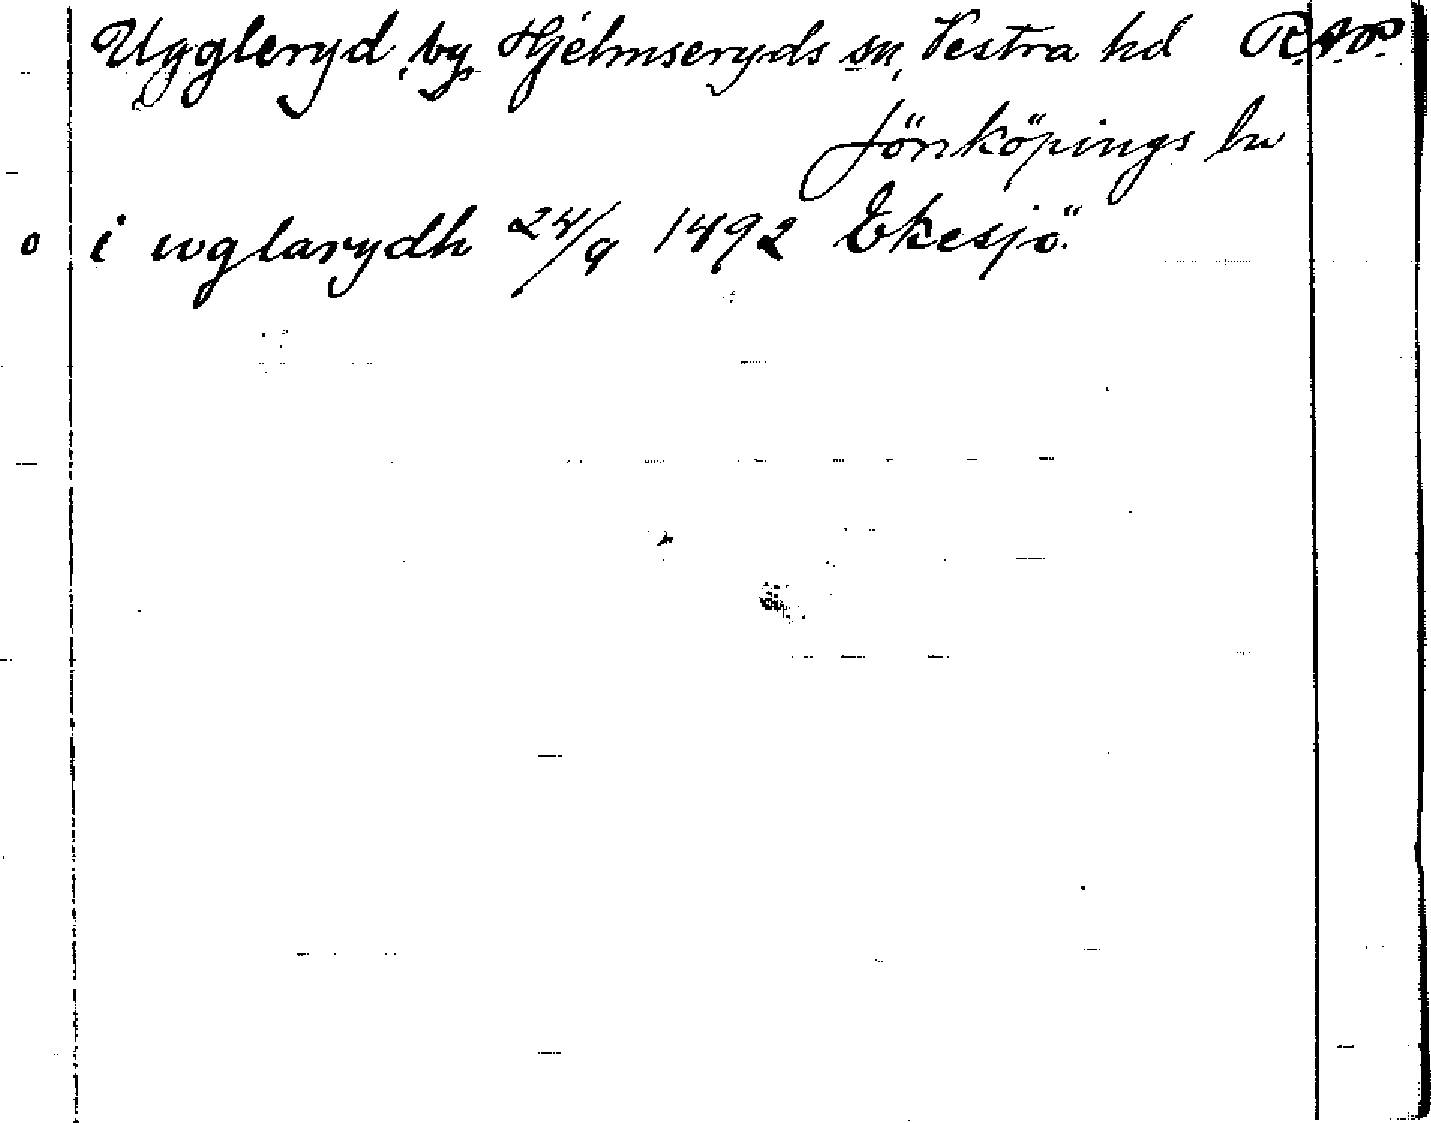 Uggleryd, by, Hjelmseryds sn, Vestra hd R.A.P.
Jönköpings ln
o i wglarydh 24/9 1492 Ekesjö.